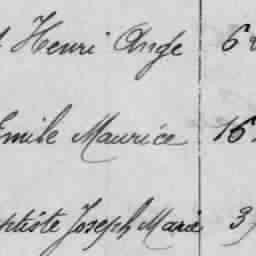 Henri Ange 6
Emile Maurice 15
Joseph Marie 3